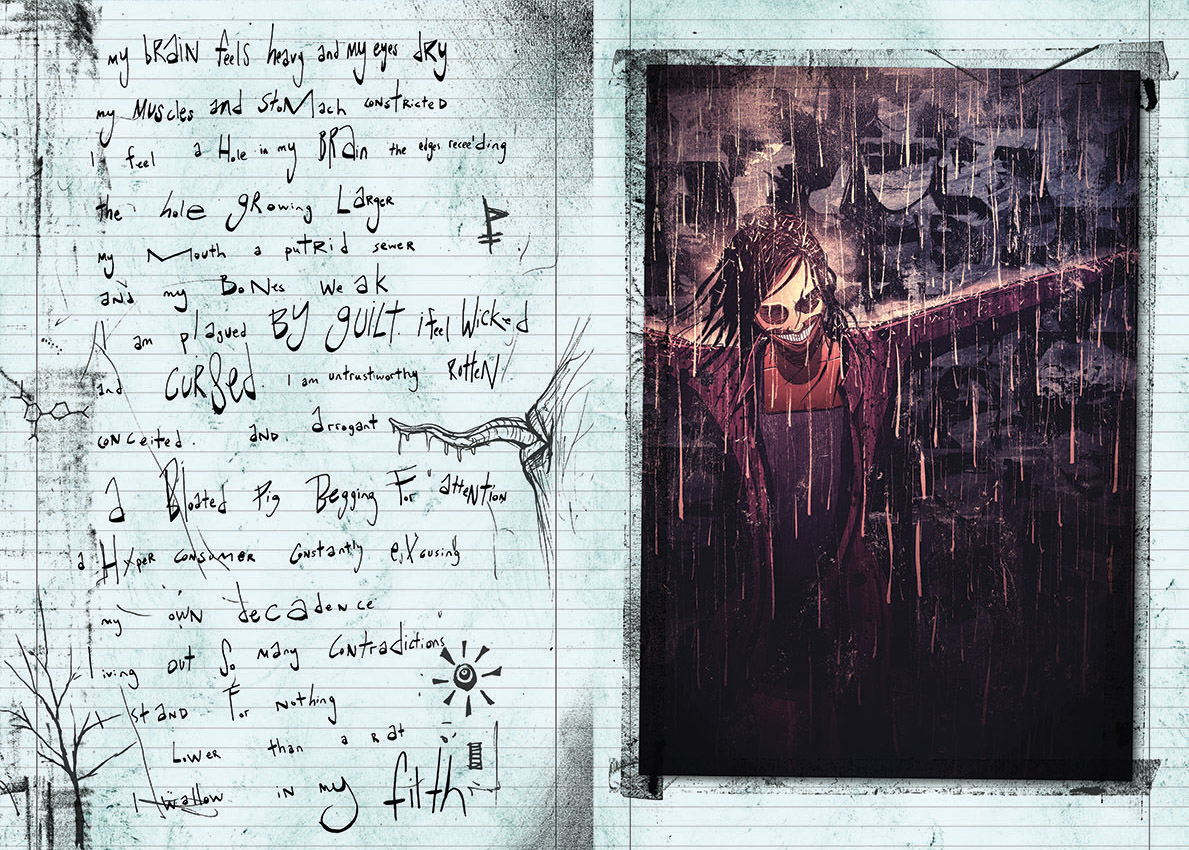 my bRAin feels heavy and my eyes dRy
my Muscles and StoMach constricteD
I feel a Hole in my BRAin the edges recee'ding
the hole gRowing LaRgeR
my Mouth a putRid sewer
and my BoNes weak
I am plagued BY guiLT i feel WickeD
and cuRsed. I am untrustworthy RotteN
conceited. aND. arrogant
a Bloated Pig Begging For atteNtion
a Hyper consumer Constantly exCusing
my owN decadence
living out So many Contradictions
I staND For nothing
Lower than a Rat
I wallow iN my filth